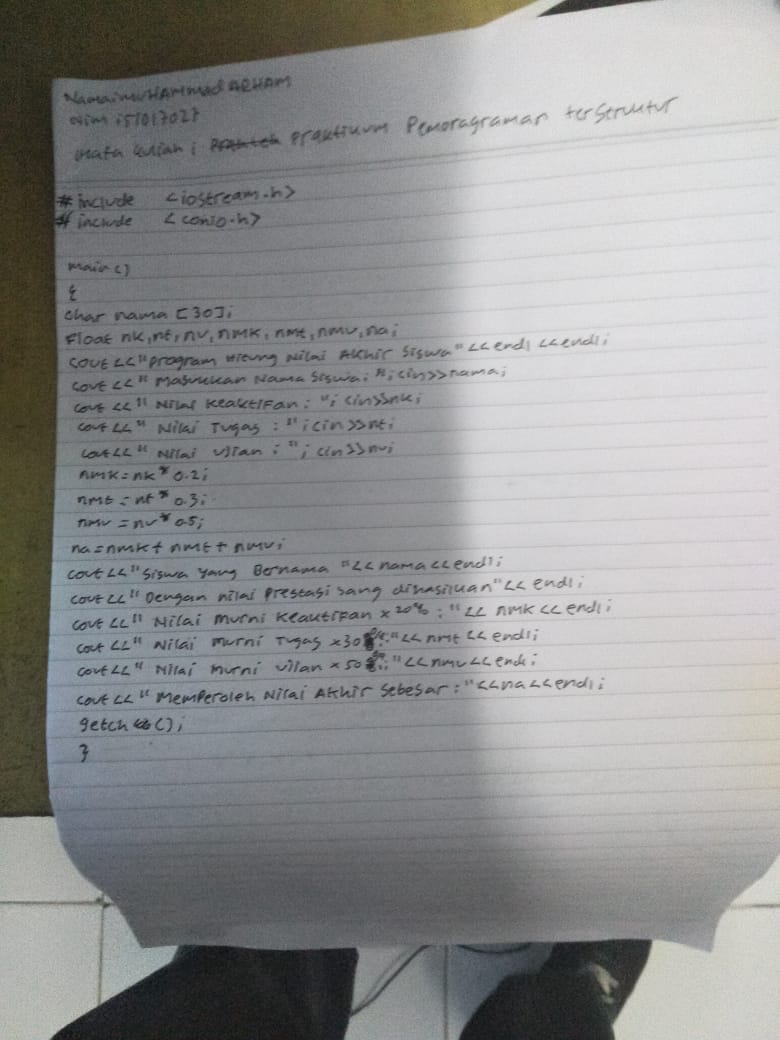 Nama : MUHAMMad ARHAM
Nim : 51017027
Mata kuliah : Praktikum Pemoragraman terstruktur
# include <iostream.h>
# include <conio.h>
main()
{
char nama [30];
Float nk, nt, nu, nmk, nmt, nmu, na;
cout <<"program Hitung Nilai Akhir Siswa" << endl << endl;
cout <<" Masukkan Nama Siswa: "; cin>>nama;
cout <<" Nilai Keaktifan : "; cin>>nk;
cout <<" Nilai Tugas : "; cin>>nt;
cout <<" Nilai Ujian : "; cin>>nu;
nmk = nk * 0.2;
nmt = nt * 0.3;
nmu = nu * 0.5;
na = nmk + nmt + nmu;
cout <<"Siswa Yang Bernama "<< nama << endl;
cout <<"Dengan nilai Prestasi sang dihasilkan"<< endl;
cout <<" Nilai murni Keaktifan x 20% : "<< nmk << endl;
cout <<" Nilai murni Tugas x 30%: "<< nmt << endl;
cout <<" Nilai murni Ujian x 50%: "<< nmu << endl;
cout <<" Memperoleh Nilai Akhir Sebesar : "<<na<<endl;
getch();
}